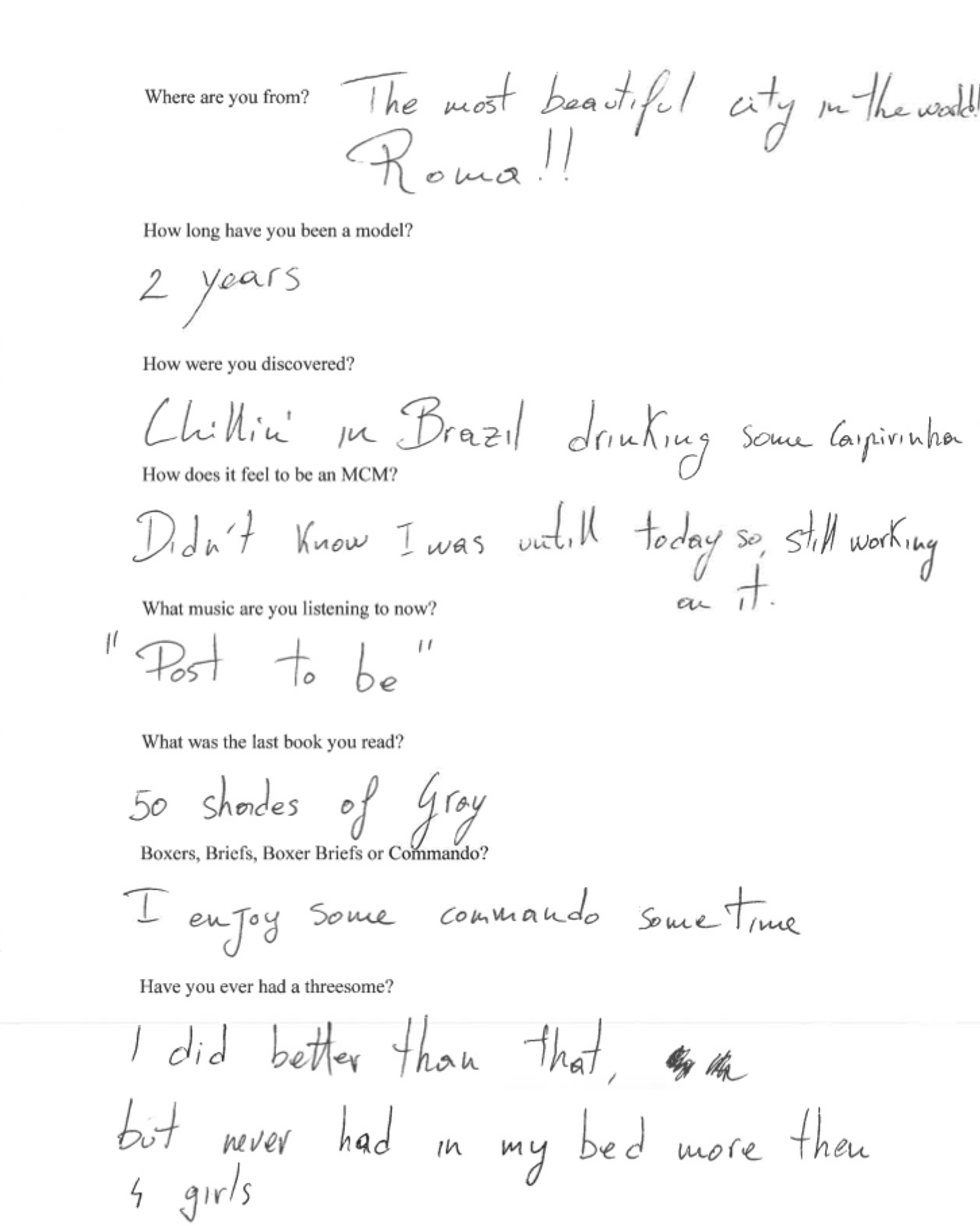 Where are you from? The most beautiful city in the world!!
Roma!!
How long have you been a model?
2 years
How were you discovered?
Chillin' in Brazil drinking some Caipirinha
How does it feel to be an MCM?
Didn't know I was untill today so, still working
on it.
What music are you listening to now?
"Post to be"
What was the last book you read?
50 shades of Gray
Boxers, Briefs, Boxer Briefs or Commando?
I enjoy some commando some time
Have you ever had a threesome?
I did better than that,
but never had in my bed more then
4 girls